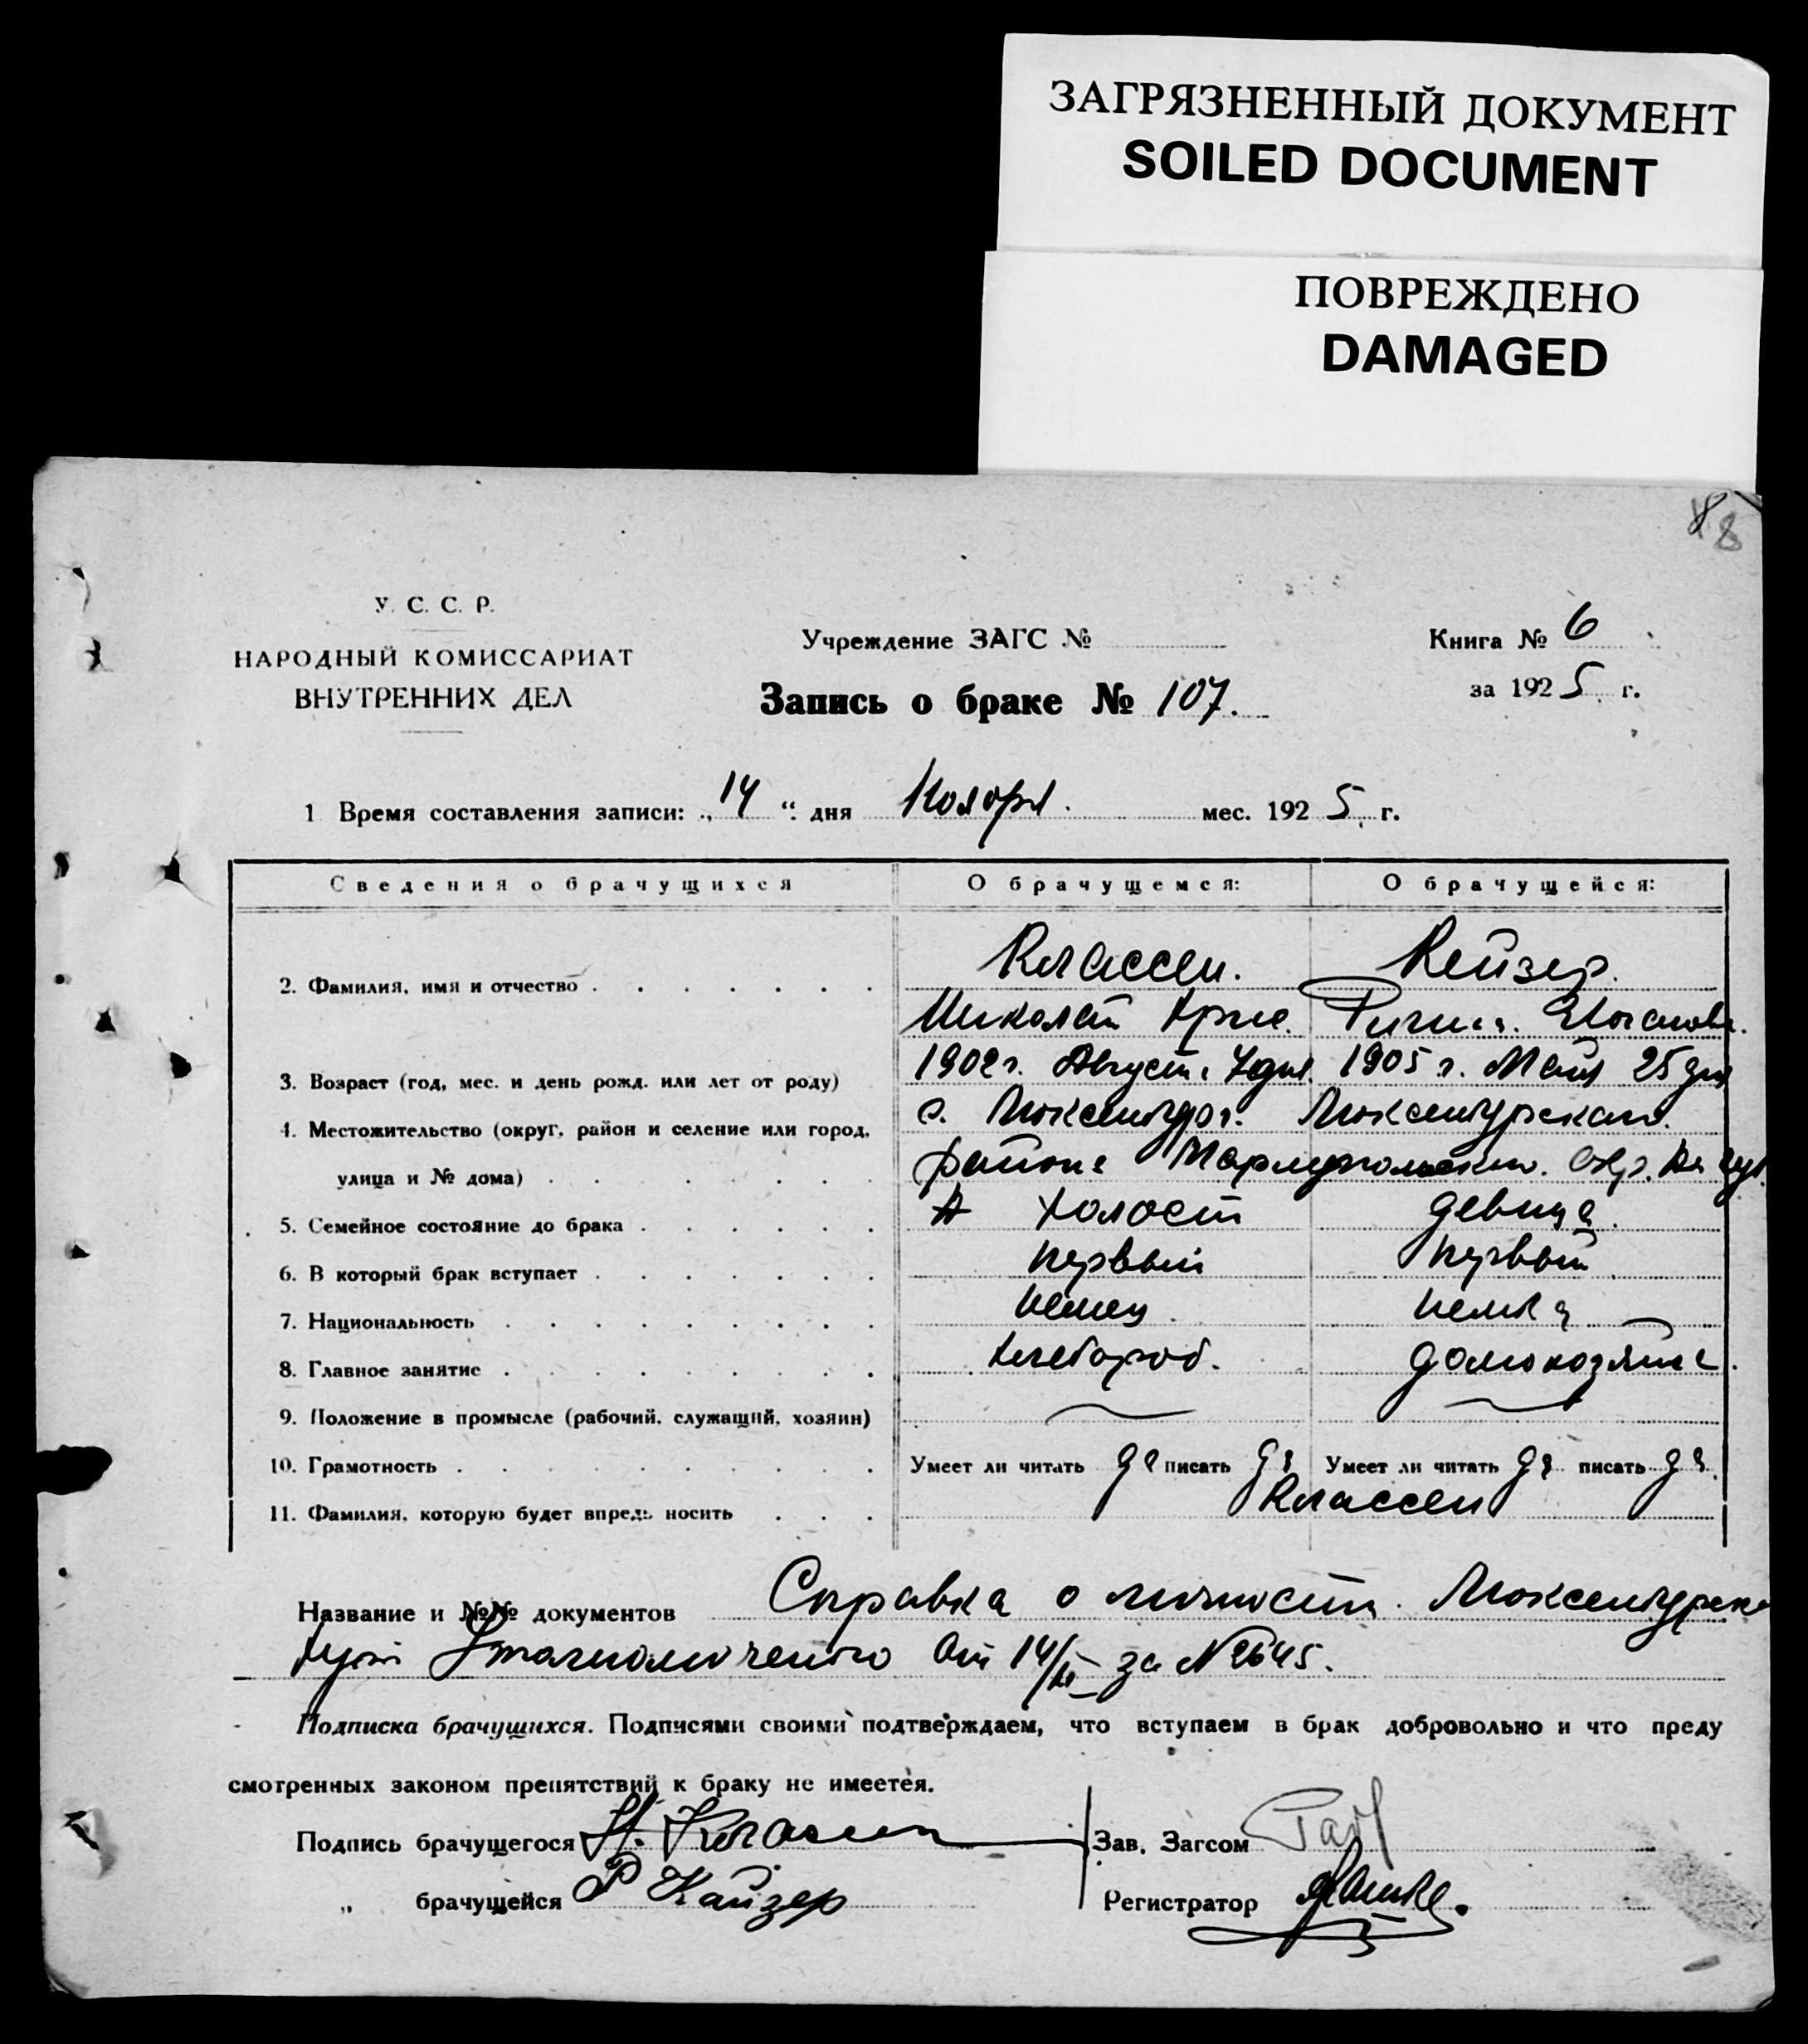 ЗАГРЯЗНЕННЫЙ ДОКУМЕНТ
SOILED DOCUMENT
ПОВРЕЖДЕНО
DAMAGED
8 8
У. С. С. Р.
НАРОДНЫЙ КОМИССАРИАТ
ВНУТРЕННИХ ДЕЛ
Учреждение ЗАГС №
Запись о браке № 107.
Книга № 6
за 1925 г.
1 Время составления записи: „14“ дня Ноября. мес. 1925 г.
Сведения о брачущихся О брачущемся: О брачущейся:
2. Фамилия, имя и отчество Классен. Кейзер.
Николай
3. Возраст (год, мес. и день рожд. или лет от роду) 1902 г. Августа 7 дня. 1905 г. Мая 25 дня
4. Местожительство (округ, район и селение или город, с. Люксембург. Люксембургского.
улица и № дома) района Мариупольского. Окр.
5. Семейное состояние до брака холост девица.
6. В который брак вступает первый первый
7. Национальность немец немка
8. Главное занятие хлебороб. домохозяйка.
9. Положение в промысле (рабочий, служащий, хозяин)
10. Грамотность Умеет ли читать да писать да Умеет ли читать да писать да
11. Фамилия, которую будет впредь носить Классен
Название и №№ документов Справка о личности. Люксембургск
от 14/XI за № 2645.
Подписка брачущихся. Подписями своими подтверждаем, что вступаем в брак добровольно и что преду
смотренных законом препятствий к браку не имеется.
Подпись брачущегося Н. Классен Зав. Загсом
„ брачущейся Р Кайзер Регистратор